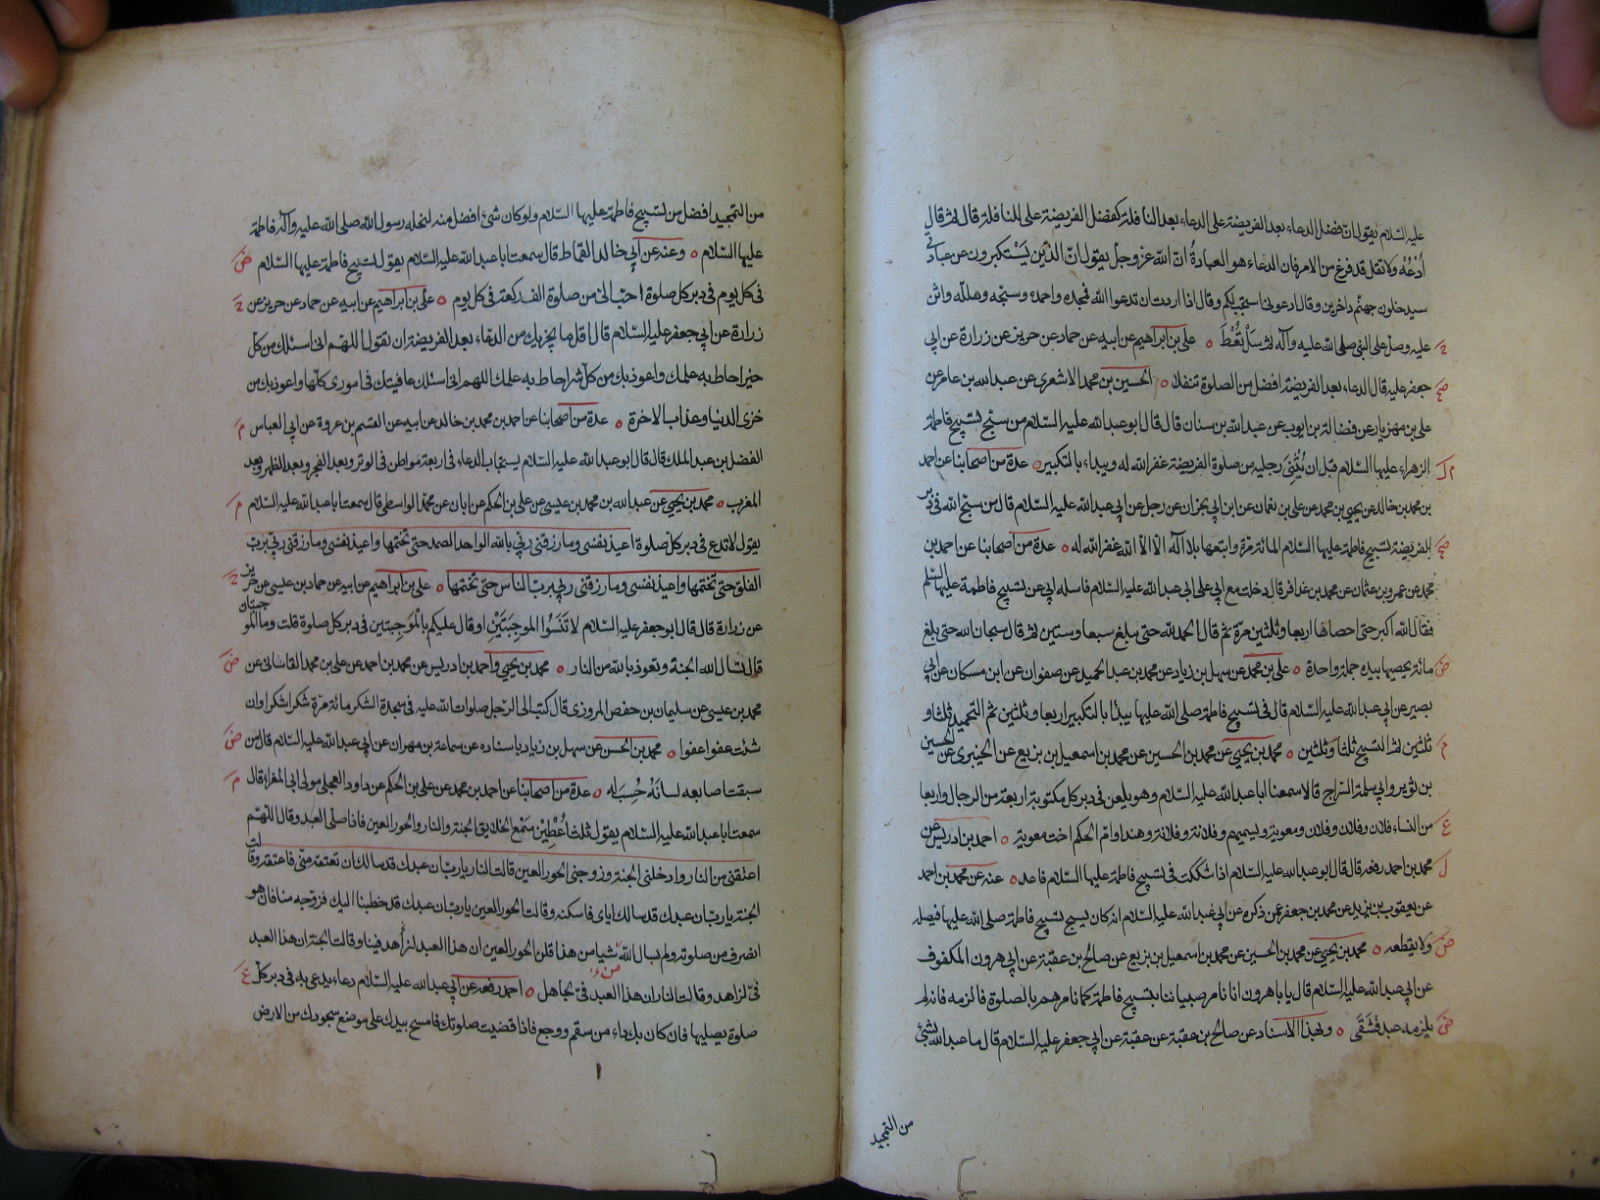 عليه السلام يقول ان فضل الدعاء بعد الفريضة على الدعاء بعد النافلة كفضل الفريضة على النافلة قال ثم قال
اُدْعُهُ ولا تقل قد فرغ من الامر فان الدعاء هو العبادة ان الله عز وجل يقول ان الذين يستكبرون عن عبادتى
سيدخلون جهنم داخرين وقال ادعونى استجب لكم وقال اذا اردت ان تدعوا الله فمجده واحمده وسبحه وهلله واثن
عليه وصل على النبى صلى الله عليه وآله ثم سَلْ تُعْطَ ٥ على بن ابراهيم عن ابيه عن حماد عن حريز عن زرارة عن ابى
جعفر عليه قال الدعاء بعد الفريضة افضل من الصلوة تنفلا ٥ الحسين بن محمد الاشعرى عن عبد الله بن عامر عن
على بن مهزيار عن فضالة بن ايوب عن عبد الله بن سنان قال قال ابو عبد الله عليه السلام من سبح تسبيح فاطمة
الزهراء عليها السلام قبل ان يُثْنِىَ رجليه من صلوة الفريضة غفر الله له ويبداء بالتكبير ٥ عدة من اصحابنا عن احمد
بن محمد بن خالد عن يحيى بن محمد عن على بن نعمان عن ابن ابى نجران عن رجل عن ابى عبد الله عليه السلام قال من سبح الله فى دبر
الفريضة تسبيح فاطمة عليها السلام المائة مرة واتبعها بلا اله الا الله غفر الله له ٥ عدة من اصحابنا عن احمد بن
محمد عن عمرو بن عثمان عن محمد بن عذافر قال دخلت مع ابى على ابى عبد الله عليه السلام فاسله ابى عن تسبيح فاطمة عليها السلم
فقال الله اكبر حتى احصاها اربعا وثلثين مرة ثم قال الحمد لله حتى بلغ سبعا وستين ثم قال سبحان الله حتى بلغ
مائة يحصيها بيده جملة واحدة ٥ على بن محمد عن سهل بن زياد عن محمد بن عبد الحميد عن صفوان عن ابن مسكان عن ابى
بصير عن ابى عبد الله عليه السلام قال فى تسبيح فاطمة صلى الله عليها يبدأ بالتكبير اربعا وثلثين ثم التحميد ثلثا و
ثلثين ثم التسبيح ثلثا وثلثين ٥ محمد بن يحيى عن محمد بن الحسين عن محمد بن اسمعيل بن بزيع عن الخيبرى عن الحسين
بن ثوير وابى سلمة السراج قالا سمعنا ابا عبد الله عليه السلام وهو يلعن فى دبر كل مكتوبة اربعة من الرجال واربعا
من النساء فلان وفلان وفلان ومعوية ويسميهم وفلانة وفلانة وهندا وام الحكم اخت معوية ٥ احمد بن ادريس عن
محمد بن احمد رفعه قال قال ابو عبد الله عليه السلام اذا شككت فى تسبيح فاطمة عليها السلام فاعد ٥ عنه عن محمد بن احمد
عن يعقوب بن يزيد عن محمد بن جعفر عمن ذكره عن ابى عبد الله عليه السلام انه كان يسبح تسبيح فاطمة صلى الله عليها فيصله
ولا يقطعه ٥ محمد بن يحيى عن محمد بن الحسين عن محمد بن اسمعيل بن بزيع عن صالح بن عقبة عن ابى هرون المكفوف
عن ابى عبد الله عليه السلام قال يا با هرون انا نامر صبياننا بتسبيح فاطمة كما نامرهم بالصلوة فالزمه فانه لم
يلزمه عبد فشقى ٥ وبهذا الاسناد عن صالح بن عقبة عن عقبة عن ابى جعفر عليه السلام قال ما عبد الله بشئ
من التمجيد
من التمجيد افضل من تسبيح فاطمة عليها السلام ولو كان شئ افضل منه لنحله رسول الله صلى الله عليه وآله فاطمة
عليها السلام ٥ وعنه عن ابى خالد القماط قال سمعت ابا عبد الله عليه السلام يقول تسبيح فاطمة عليها السلام
فى كل يوم فى دبر كل صلوة احب الى من صلوة الف ركعة فى كل يوم ٥ على بن ابراهيم عن ابيه عن حماد عن حريز عن
زرارة عن ابى جعفر عليه السلام قال اقل ما يجزيك من الدعاء بعد الفريضة ان تقول اللهم انى اسئلك من كل
خير احاط به علمك واعوذ بك من كل شر احاط به علمك اللهم انى اسئلك عافيتك فى امورى كلها واعوذ بك من
خزى الدنيا وعذاب الاخرة ٥ عدة من اصحابنا عن احمد بن محمد بن خالد عن ابيه عن القسم بن عروة عن ابى العباس
الفضل بن عبد الملك قال قال ابو عبد الله عليه السلام يستجاب الدعاء فى اربعة مواطن فى الوتر وبعد الفجر وبعد الظهر وبعد
المغرب ٥ محمد بن يحيى عن عبد الله بن محمد بن عيسى عن على بن الحكم عن ابان عن محمد الواسطى قال سمعت ابا عبد الله عليه السلام
يقول لا تدع فى دبر كل صلوة اعيذ نفسى وما رزقنى ربى بالله الواحد الصمد حتى تختمها واعيذ نفسى وما رزقنى ربى برب
الفلق حتى تختمها واعيذ نفسى وما رزقنى ربى برب الناس حتى تختمها ٥ على بن ابراهيم عن ابيه عن حماد بن عيسى عن حريز
عن زرارة قال قال ابو جعفر عليه السلام لا تَنْسَوُا الموجِبَتَيْنِ او قال عليكم بالموجبتين فى دبر كل صلوة قلت وما الموجبتان
قال تسال الله الجنة وتعوذ بالله من النار ٥ محمد بن يحيى واحمد بن ادريس عن محمد بن احمد عن على بن محمد القاسانى عن
محمد بن عيسى عن سليمان بن حفص المروزى قال كتب الى الرجل صلوات الله عليه فى سجدة الشكر مائة مرة شكرا شكرا وان
شئت عفوا عفوا ٥ محمد بن الحسن عن سهل بن زياد باسناده عن سماعة بن مهران عن ابى عبد الله عليه السلام قال من
سبقت اصابعه لسانَهُ حُسِبَ له ٥ عدة من اصحابنا عن احمد بن محمد عن على بن الحكم عن داود العجلى مولى ابى المغرا قال
سمعت ابا عبد الله عليه السلام يقول ثلث اُعْطِيْنَ سَمْعَ الخلايق الجنة والنار والحور العين فاذا صلى العبد وقال اللهم
اعتقنى من النار وادخلنى الجنة وزوجنى الحور العين قالت النار يا رب ان عبدك قد سالك ان تعتقه منى فاعتقه وقالت
الجنة يا رب ان عبدك قد سالك اياى فاسكنه وقالت الحور العين يا رب ان عبدك قد خطبنا اليك فزوجه منا فان هو
انصرف من صلوته ولم يسال الله شيا من هذا قلن الحور العين ان هذا العبد لزاهد فينا وقالت الجنة ان هذا العبد
فىّ لزاهد وقالت النار ان هذا العبد فىّ لجاهل ٥ احمد رفعه عن ابى عبد الله عليه السلام دعاء يدعى به فى دبر كل
صلوة يصليها فان كان بك داء من سقم ووجع فاذا قضيت صلوتك فامسح بيدك على موضع سجودك من الارض